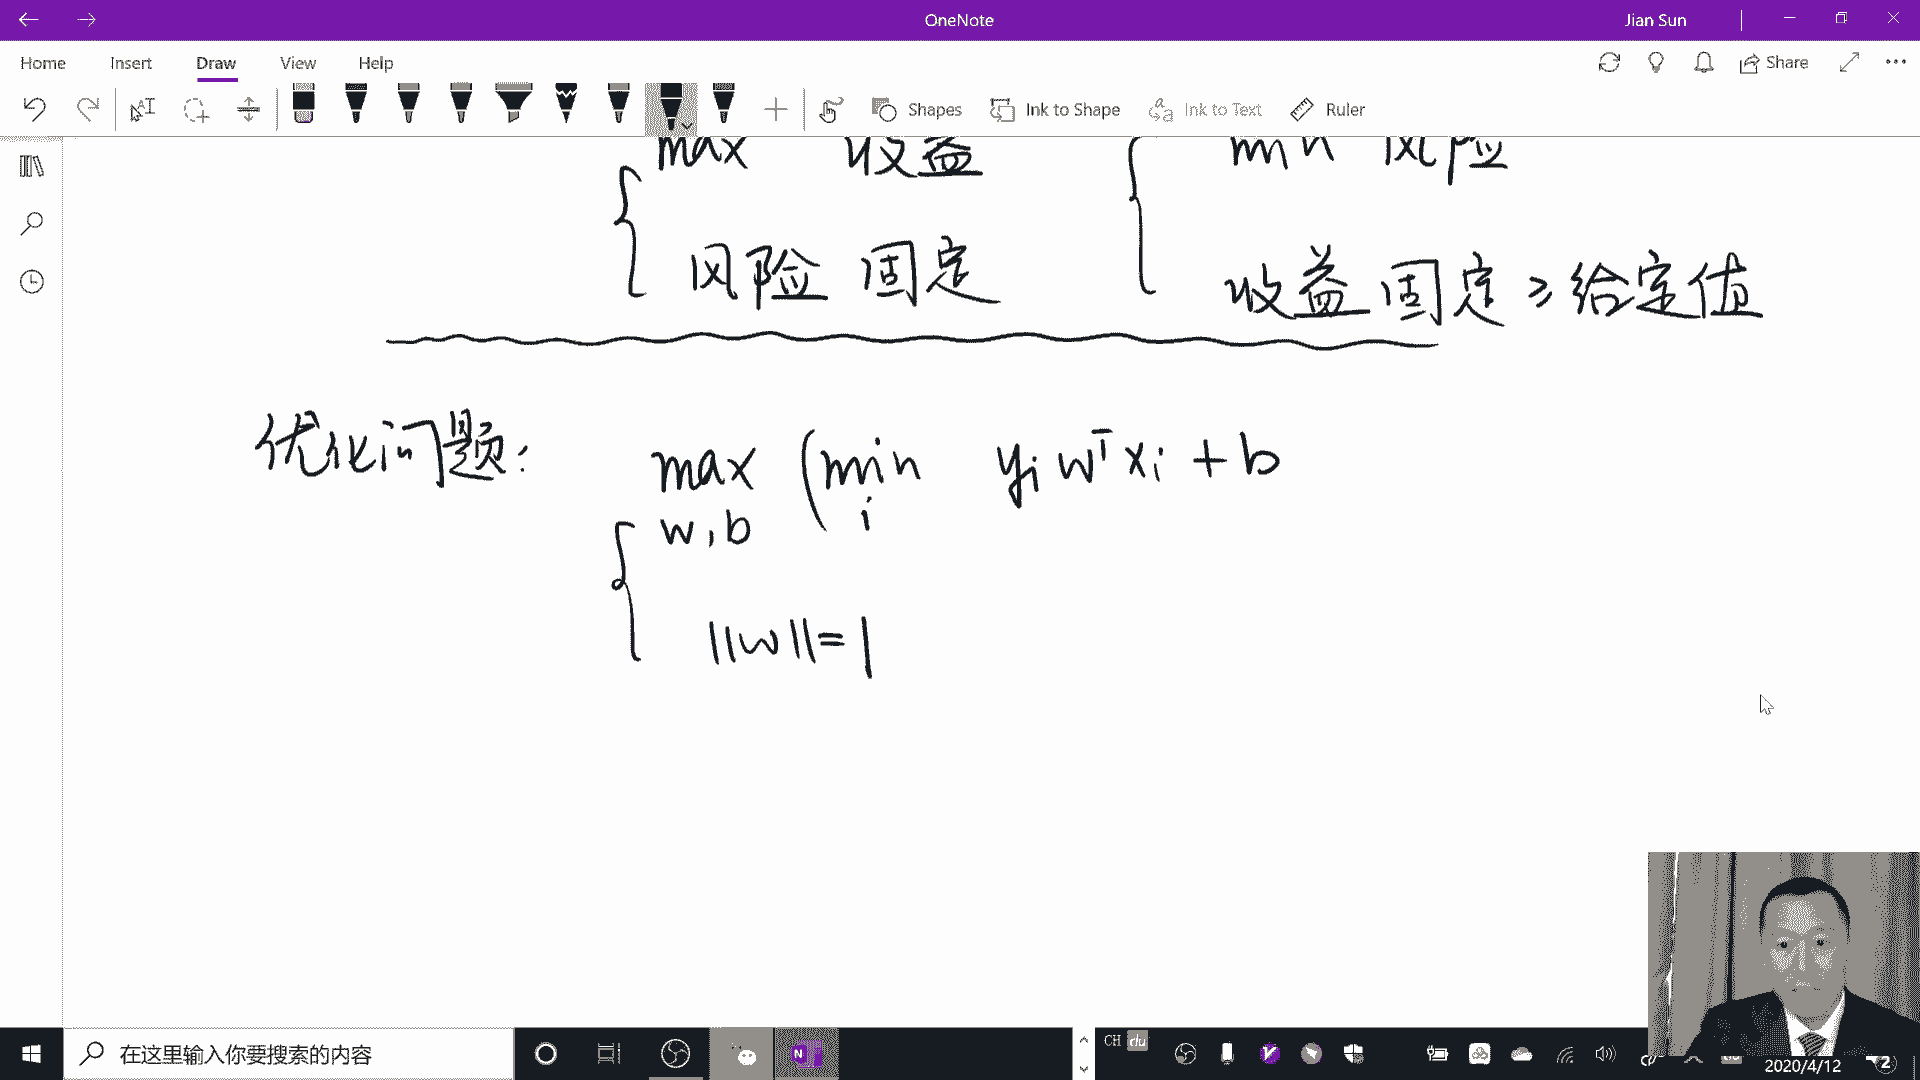 OneNote
Jian Sun
Home Insert Draw View Help
Share
Shapes Ink to Shape Ink to Text Ruler
max 收益 min 风险
风险 固定 收益 固定 ≥ 给定值
优化问题: max (min yᵢ wᵀ xᵢ + b
w, b i
||w|| = 1
在这里输入你要搜索的内容
CH
2020/4/12
2